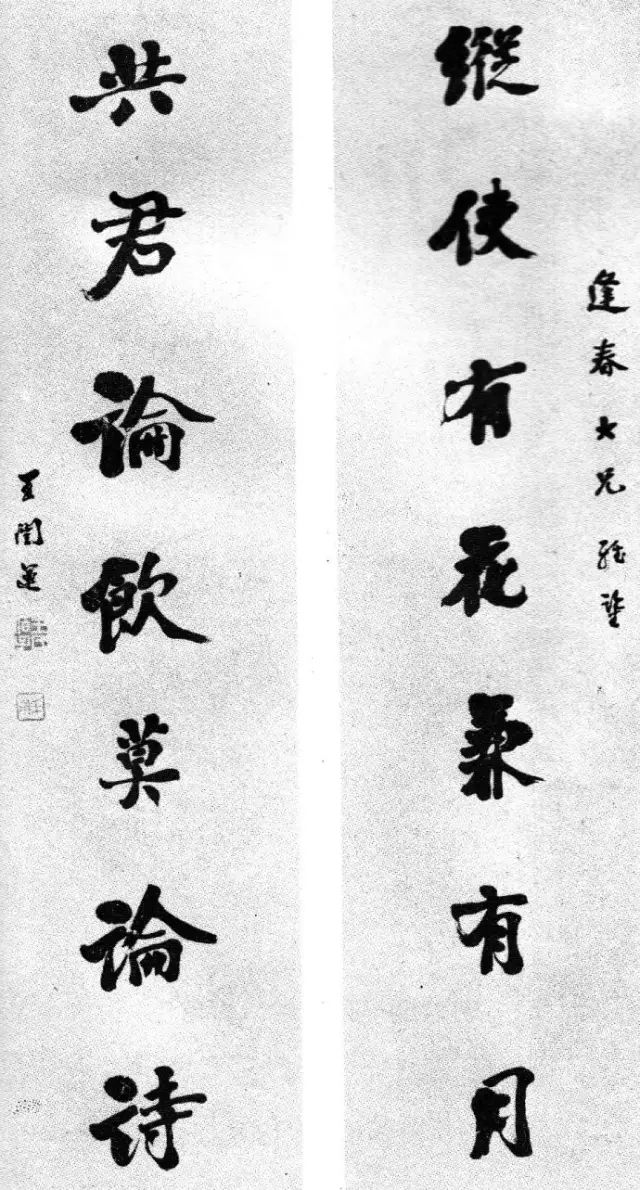 逢春大兄雅鑒
縱使有花兼有月
共君論飲莫論詩
王闓運